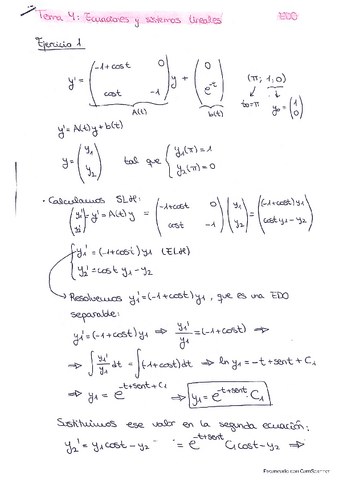 Tema 4: Ecuaciones y sistemas lineales EDO
Ejercicio 1
y' = (-1+cost 0 ; cost -1) y + (0 ; e^-t) (π; 1, 0)
A(t) b(t) t₀=π y₀=(1 ; 0)
y' = A(t)y + b(t)
y = (y₁ ; y₂) tal que { y₁(π)=1 ; y₂(π)=0
• Calculamos SLH:
(y₁' ; y₂') = y' = A(t)y = (-1+cost 0 ; cost -1) (y₁ ; y₂) = ((-1+cost)y₁ ; cost y₁ - y₂)
{ y₁' = (-1+cost) y₁ (ELH)
y₂' = cost y₁ - y₂
→ Resolvemos y₁' = (-1+cost) y₁, que es una EDO
separable:
y₁' = (-1+cost) y₁ ⇒ y₁'/y₁ = (-1+cost) ⇒
⇒ ∫ y₁'/y₁ dt = ∫ (-1+cost) dt ⇒ ln y₁ = -t + sent + C₁
⇒ y₁ = e^(-t+sent+C₁) ⇒ y₁ = e^(-t+sent) · C₁
Sustituimos ese valor en la segunda ecuación:
y₂' = y₁ cost - y₂ = e^(-t+sent) C₁ cost - y₂ ⇒
Escaneado con CamScanner